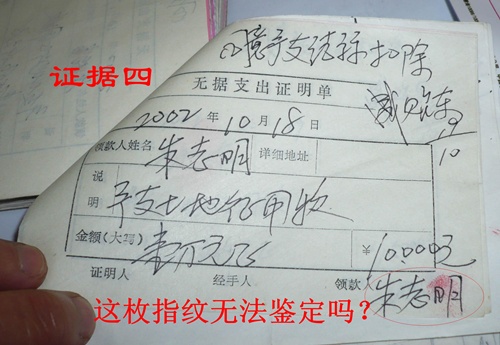 予支结算扣除
证据四
无据支出证明单
2002 年 10 月 18 日
19
10
领款人姓名 朱志明 详细地址
说明 予支土地征用款
金额(大写) 壹万元正 ¥10000元
证明人 经手人 领款人
朱志明
这枚指纹无法鉴定吗?